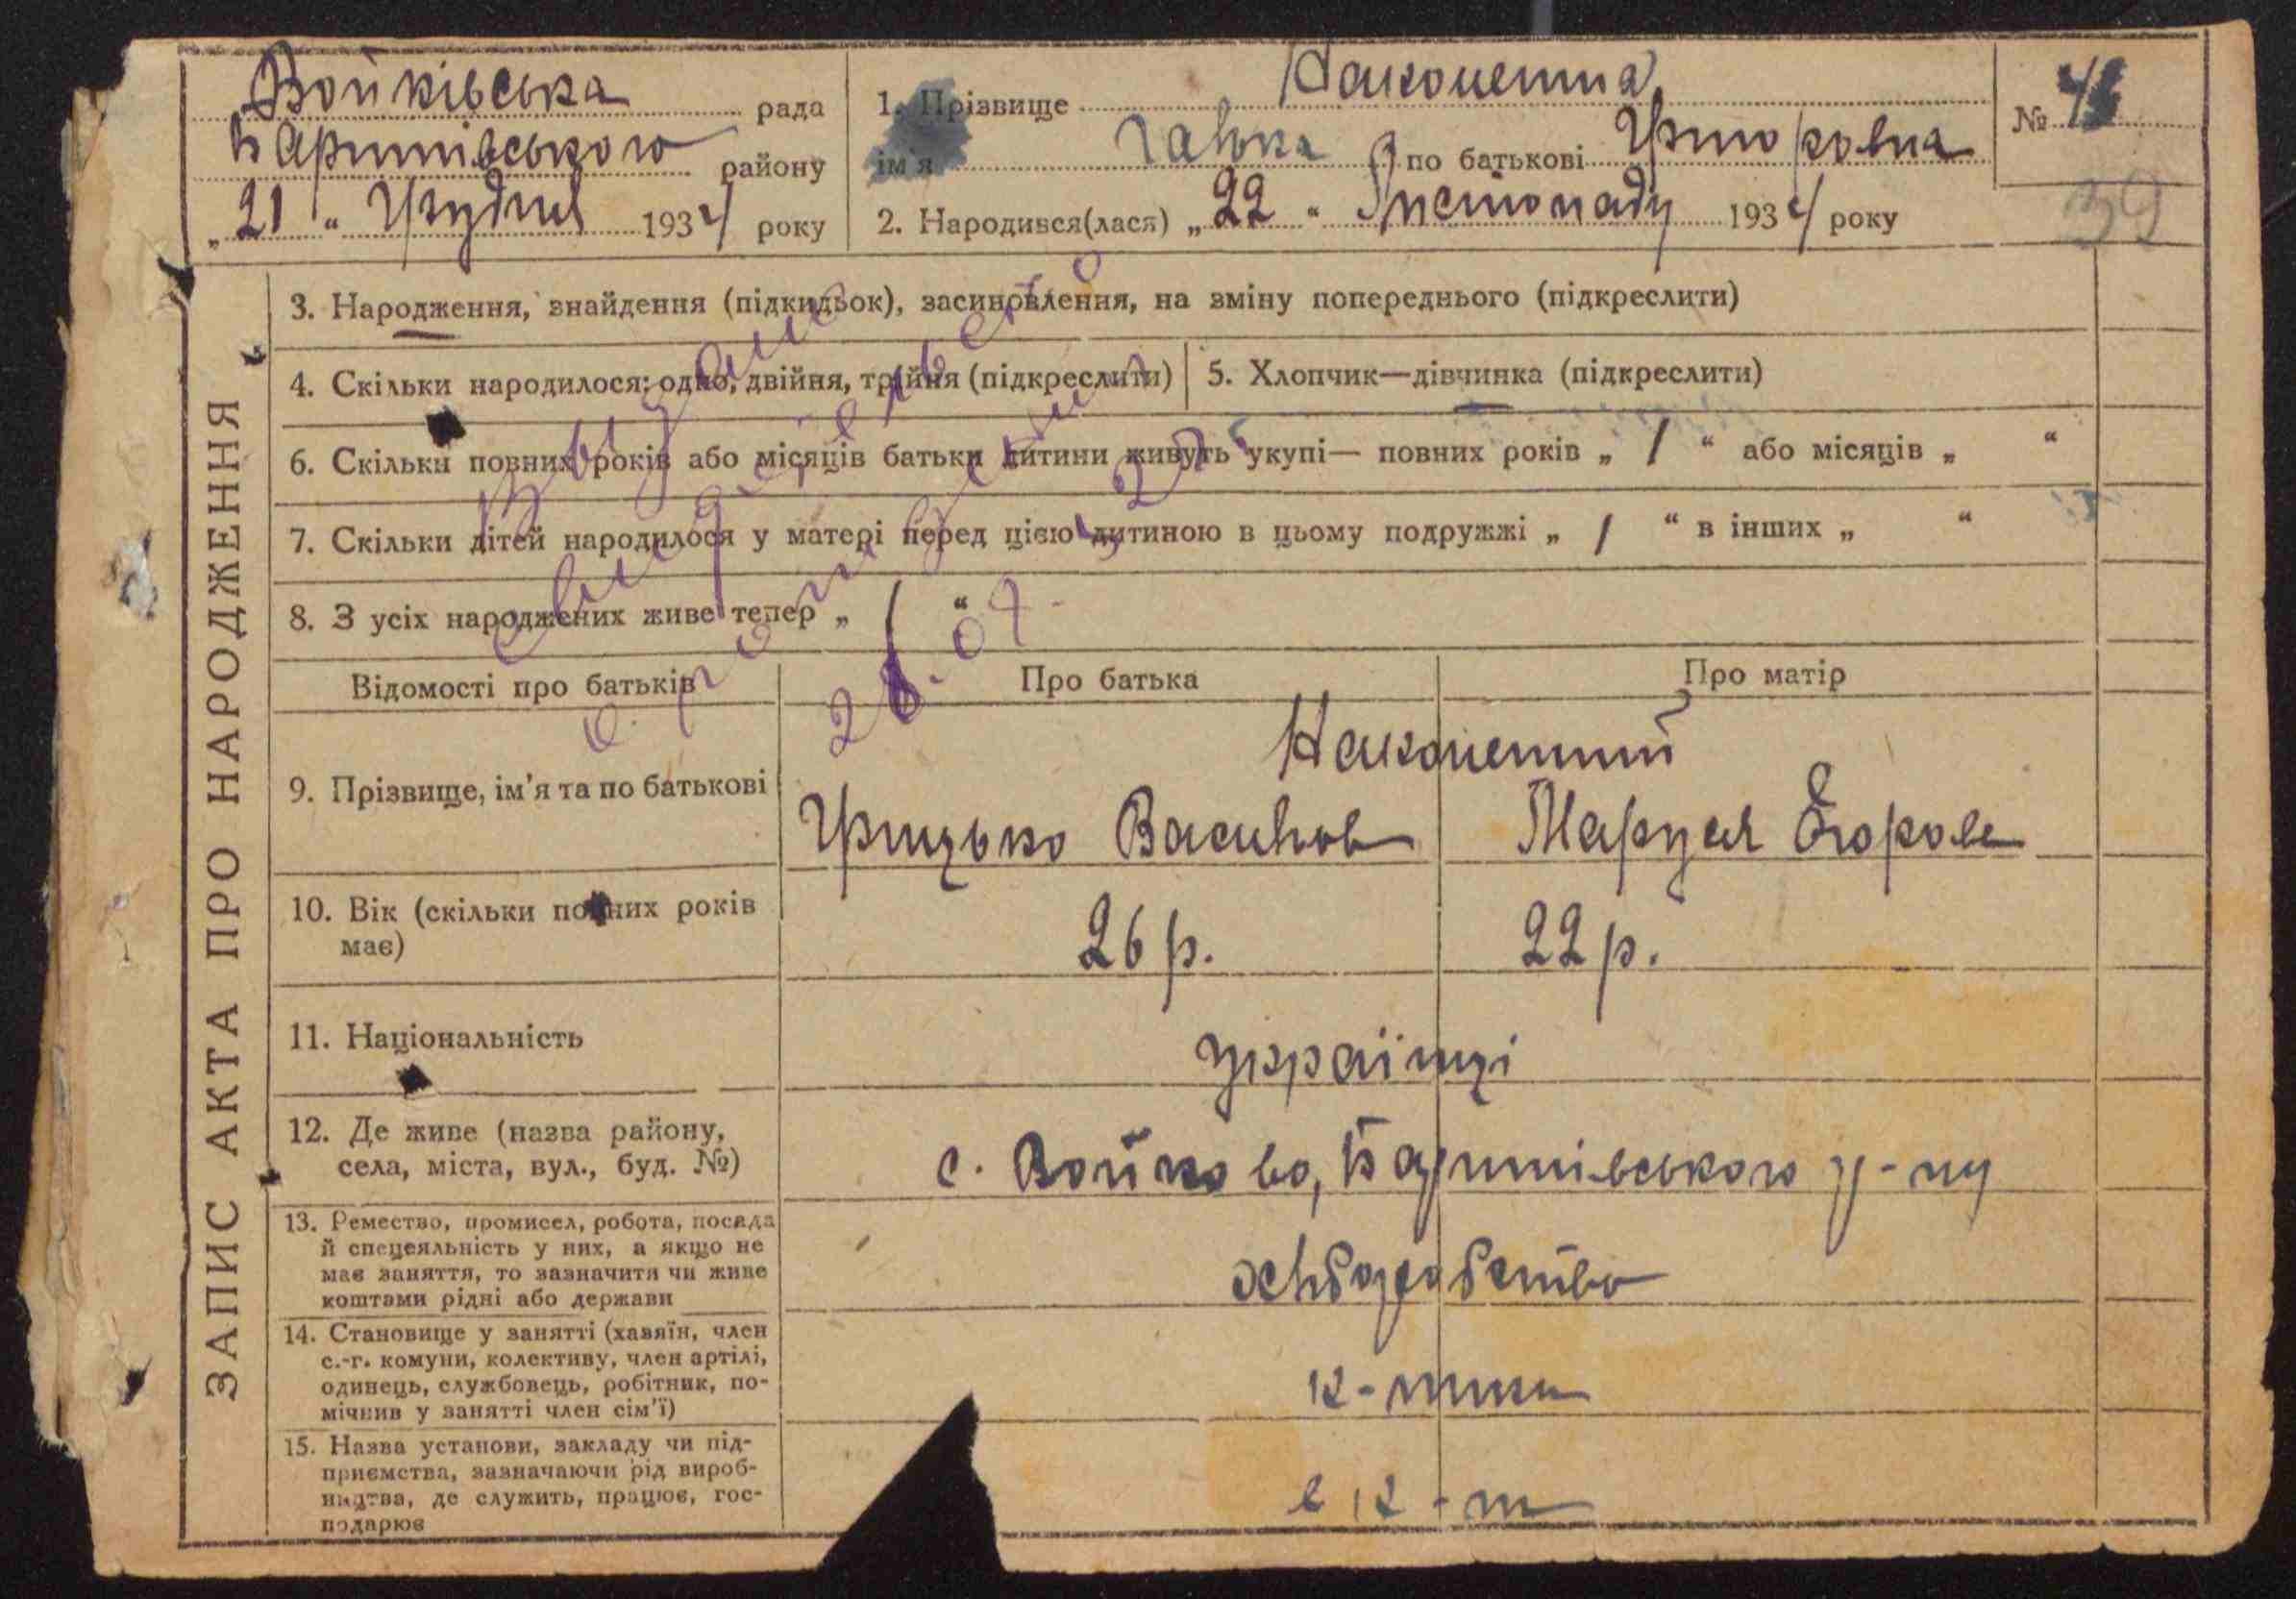 Войківська рада
Баришівського району
„21“ Грудня 1934 року
1. Прізвище Наконешна
ім'я Галька по батькові Григоровна
2. Народився(лася) „22“ Листопаду 1934 року
№ 41
39
ЗАПИС АКТА ПРО НАРОДЖЕННЯ
3. Народження, знайдення (підкидьок), засиновлення, на зміну попереднього (підкреслити)
4. Скільки народилося: одно, двійня, трійня (підкреслити)
5. Хлопчик—дівчинка (підкреслити)
6. Скільки повних років або місяців батьки дитини живуть укупі— повних років „ 1 “ або місяців „ “
7. Скільки дітей народилося у матері перед цією дитиною в цьому подружжі „ 1 “ в інших „ “
8. З усіх народжених живе тепер „ 1 “
Видано
28.04
Відомості про батьків
Про батька
Про матір
9. Прізвище, ім'я та по батькові
Наконешний
Грицько Васильов
Маруся Егоров
10. Вік (скільки повних років
має)
26 р.
22 р.
11. Національність
українці
12. Де живе (назва району,
села, міста, вул., буд. №)
с. Войково, Баришівського р-ну
13. Ремество, промисел, робота, посада
й спецеяльність у них, а якщо не
має заняття, то зазначити чи живе
коштами рідні або держави
хліборобство
14. Становище у занятті (хазяїн, член
с.-г. комуни, колективу, член артілі,
одинець, службовець, робітник, по-
мічнив у занятті член сім'ї)
к-шники
15. Назва установи, закладу чи під-
приємства, зазначаючи рід вироб-
ництва, де служить, працює, гос-
подарює
в к-ш